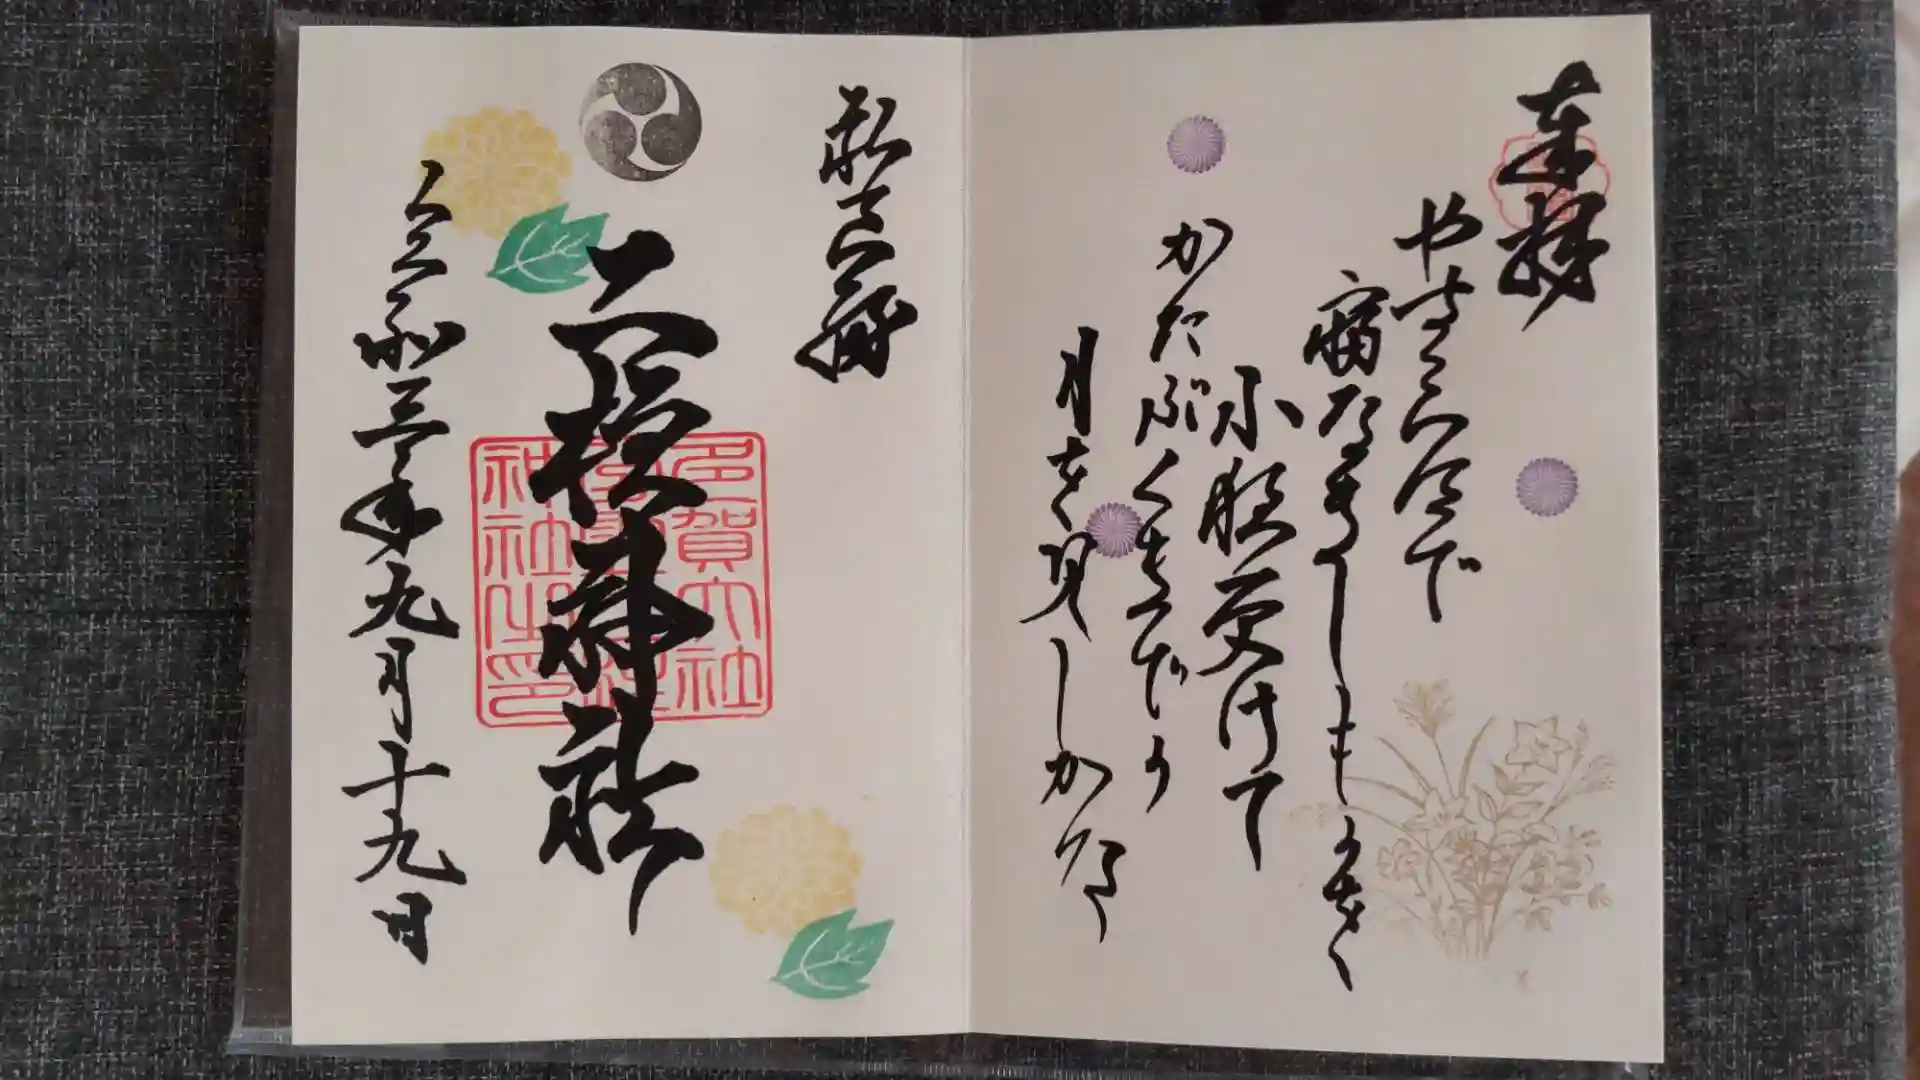 奉拝
やすらはで
寝なましものを
小夜更けて
かたぶくまでの
月を見しかな
神社
多賀大社
神社之印
令和三年九月十九日